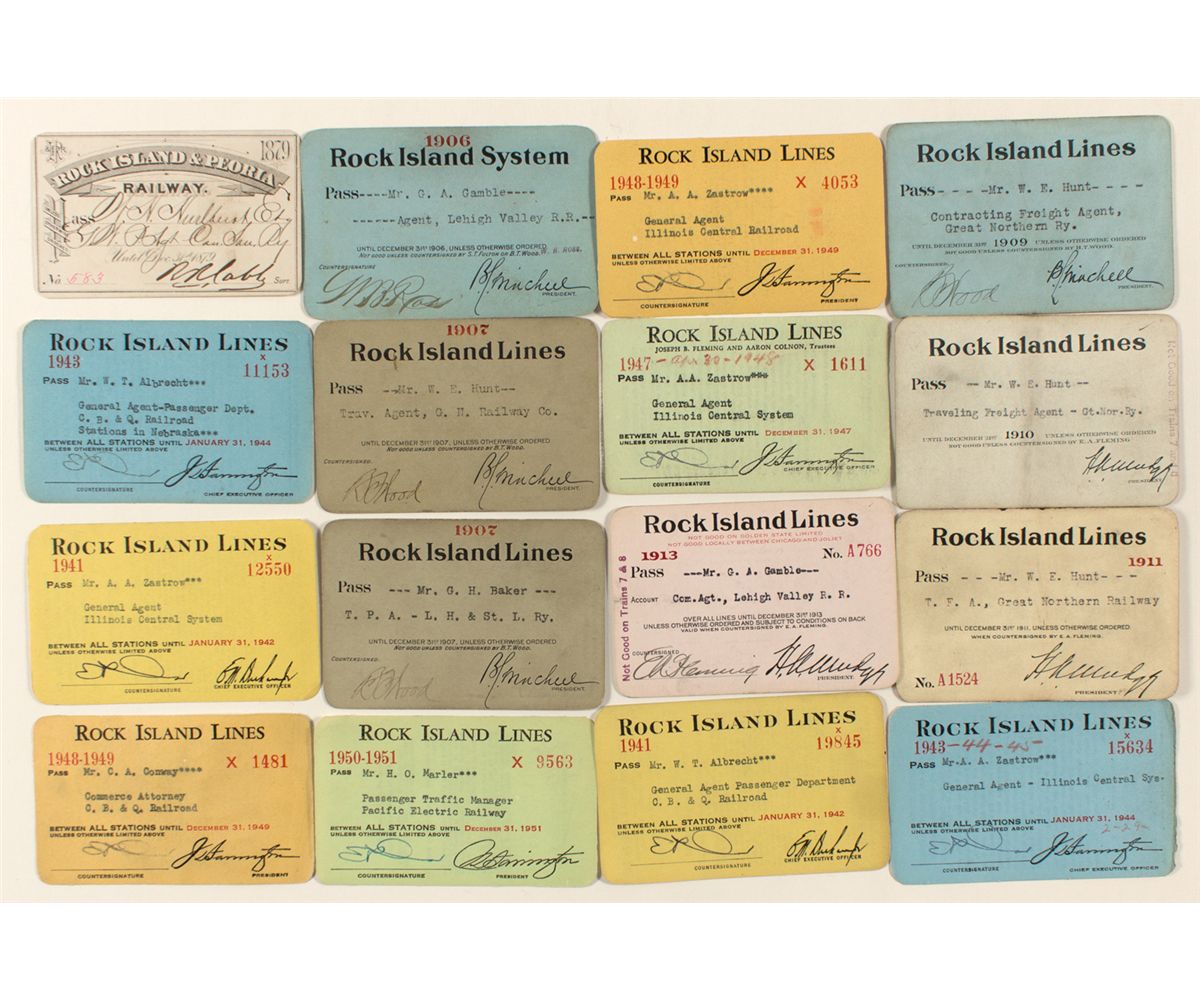 1879
ROCK ISLAND & PEORIA
RAILWAY.
Pass
Until Dec. 31st 1879
No. 583
Supt.
1906
Rock Island System
Pass----Mr. G. A. Gamble----
------Agent, Lehigh Valley R.R.--
UNTIL DECEMBER 31ST 1906, UNLESS OTHERWISE ORDERED
NOT GOOD UNLESS COUNTERSIGNED BY S.T. FULTON OR B.T. WOOD. W. B. ROSS.
COUNTERSIGNATURE
PRESIDENT.
ROCK ISLAND LINES
1948-1949 X 4053
PASS Mr. A. A. Zastrow****
General Agent
Illinois Central Railroad
BETWEEN ALL STATIONS UNTIL DECEMBER 31, 1949
UNLESS OTHERWISE LIMITED ABOVE
COUNTERSIGNATURE PRESIDENT
Rock Island Lines
Pass- - - -Mr. W. E. Hunt- - - -
Contracting Freight Agent,
Great Northern Ry.
UNTIL DECEMBER 31ST 1909 UNLESS OTHERWISE ORDERED
NOT GOOD UNLESS COUNTERSIGNED BY H.T. WOOD.
COUNTERSIGNED.
PRESIDENT.
ROCK ISLAND LINES
1943 X 11153
PASS Mr. W. T. Albrecht***
General Agent-Passenger Dept.
C. B. & Q. Railroad
Stations in Nebraska***
BETWEEN ALL STATIONS UNTIL JANUARY 31, 1944
UNLESS OTHERWISE LIMITED ABOVE
COUNTERSIGNATURE CHIEF EXECUTIVE OFFICER
1907
Rock Island Lines
Pass --Mr. W. E. Hunt--
Trav. Agent, G. N. Railway Co.
UNTIL DECEMBER 31ST 1907, UNLESS OTHERWISE ORDERED
NOT GOOD UNLESS COUNTERSIGNED BY B.T. WOOD
COUNTERSIGNED.
PRESIDENT.
ROCK ISLAND LINES
JOSEPH B. FLEMING AND AARON COLNON, Trustees
1947 - Apr 30 - 1948 X 1611
PASS Mr. A.A. Zastrow***
General Agent
Illinois Central System
BETWEEN ALL STATIONS UNTIL DECEMBER 31, 1947
UNLESS OTHERWISE LIMITED ABOVE
COUNTERSIGNATURE CHIEF EXECUTIVE OFFICER
Rock Island Lines
Pass --Mr. W. E. Hunt--
Traveling Freight Agent - Gt.Nor.Ry.
UNTIL DECEMBER 31ST 1910 UNLESS OTHERWISE ORDERED
NOT GOOD UNLESS COUNTERSIGNED BY E.A. FLEMING
PRESIDENT
Not Good on Trains
ROCK ISLAND LINES
1941 X 12550
PASS Mr. A. A. Zastrow***
General Agent
Illinois Central System
BETWEEN ALL STATIONS UNTIL JANUARY 31, 1942
UNLESS OTHERWISE LIMITED ABOVE
COUNTERSIGNATURE CHIEF EXECUTIVE OFFICER
1907
Rock Island Lines
Pass --- Mr. G. H. Baker ---
T. P. A. - L. H. & St. L. Ry.
UNTIL DECEMBER 31ST 1907, UNLESS OTHERWISE ORDERED.
NOT GOOD UNLESS COUNTERSIGNED BY B.T. WOOD.
COUNTERSIGNED.
PRESIDENT.
Rock Island Lines
NOT GOOD ON GOLDEN STATE LIMITED
NOT GOOD LOCALLY BETWEEN CHICAGO AND JOLIET
1913 No. A766
Pass ---Mr. G. A. Gamble--
ACCOUNT Com.Agt., Lehigh Valley R. R.
OVER ALL LINES UNTIL DECEMBER 31ST 1913
UNLESS OTHERWISE ORDERED AND SUBJECT TO CONDITIONS ON BACK
VALID WHEN COUNTERSIGNED BY E. A. FLEMING.
COUNTERSIGNED
PRESIDENT.
Not Good on Trains 7 & 8
Rock Island Lines
1911
Pass - - -Mr. W. E. Hunt- - -
T. F. A., Great Northern Railway
UNTIL DECEMBER 31ST 1911, UNLESS OTHERWISE ORDERED.
WHEN COUNTERSIGNED BY E. A. FLEMING.
No. A1524
PRESIDENT
ROCK ISLAND LINES
1948-1949 X 1481
PASS Mr. C. A. Conway****
Commerce Attorney
C. B. & Q. Railroad
BETWEEN ALL STATIONS UNTIL DECEMBER 31, 1949
UNLESS OTHERWISE LIMITED ABOVE
COUNTERSIGNATURE PRESIDENT
ROCK ISLAND LINES
1950-1951 X 9563
PASS Mr. H. O. Marler***
Passenger Traffic Manager
Pacific Electric Railway
BETWEEN ALL STATIONS UNTIL DECEMBER 31, 1951
UNLESS OTHERWISE LIMITED ABOVE
COUNTERSIGNATURE PRESIDENT
ROCK ISLAND LINES
1941 X 19845
PASS Mr. W. T. Albrecht***
General Agent Passenger Department
C. B. & Q. Railroad
BETWEEN ALL STATIONS UNTIL JANUARY 31, 1942
UNLESS OTHERWISE LIMITED ABOVE
COUNTERSIGNATURE CHIEF EXECUTIVE OFFICER
ROCK ISLAND LINES
1943 -44-45- X 15634
PASS Mr. A. A. Zastrow***
General Agent - Illinois Central Sys-
BETWEEN ALL STATIONS UNTIL JANUARY 31, 1944
UNLESS OTHERWISE LIMITED ABOVE
COUNTERSIGNATURE CHIEF EXECUTIVE OFFICER